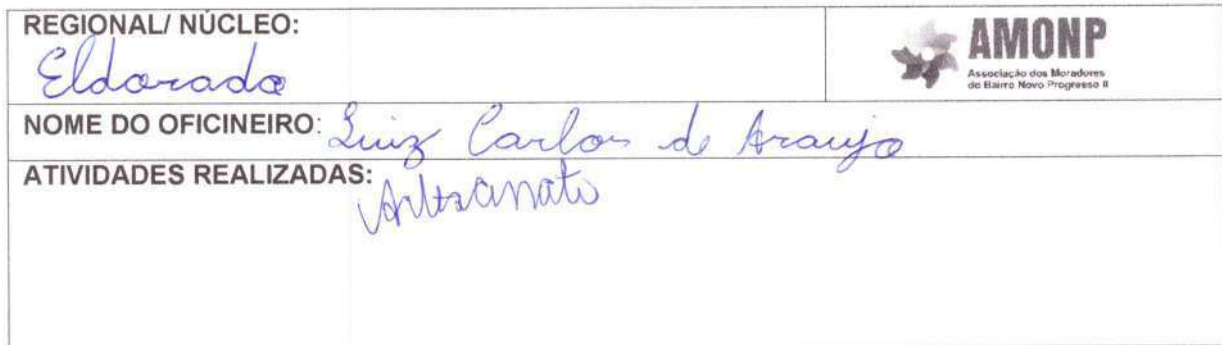 REGIONAL/ NÚCLEO:
Eldorado
AMONP
Associação dos Moradores
do Bairro Novo Progresso II
NOME DO OFICINEIRO: Luiz Carlos de Araujo
ATIVIDADES REALIZADAS:
Artesanato